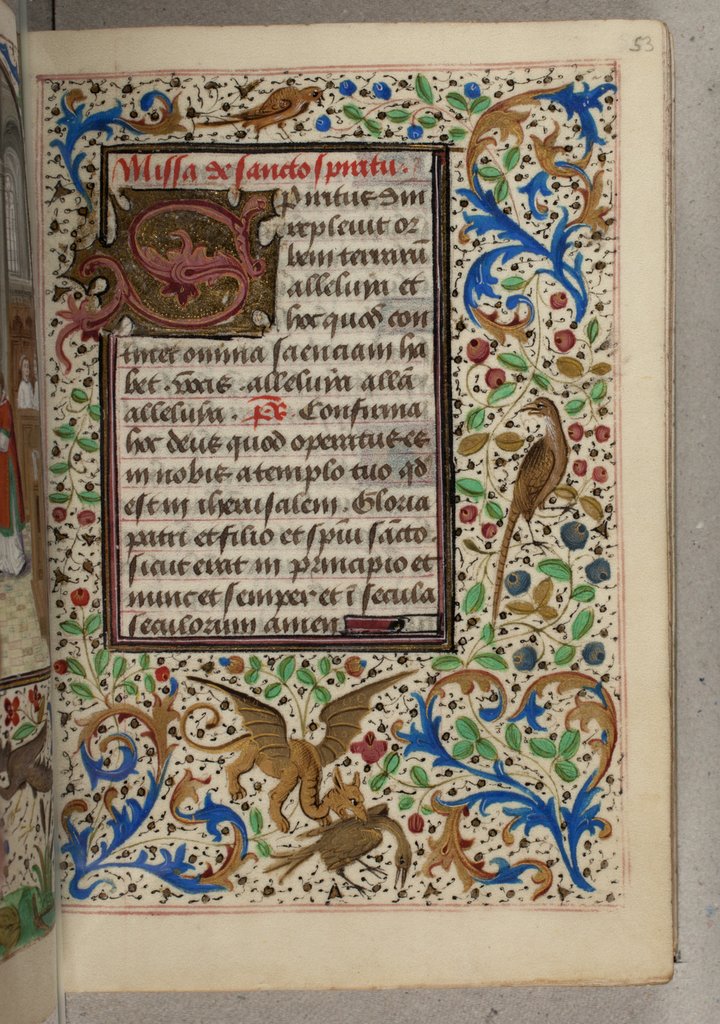 53
Missa de sancto spiritu.
Spiritus dn̄i
repleuit or
bem terrarū
alleluya et
hoc quod con
tinet omnia scienciam ha
bet. uocis. alleluya allā
alleluya. ps̄. Confirma
hoc deus quod operatus es
in nobis a templo tuo qd̄
est in iherusalem. Gloria
patri et filio et spiū sācto.
sicut erat in principio et
nunc et semper et ī secula
seculorum amen